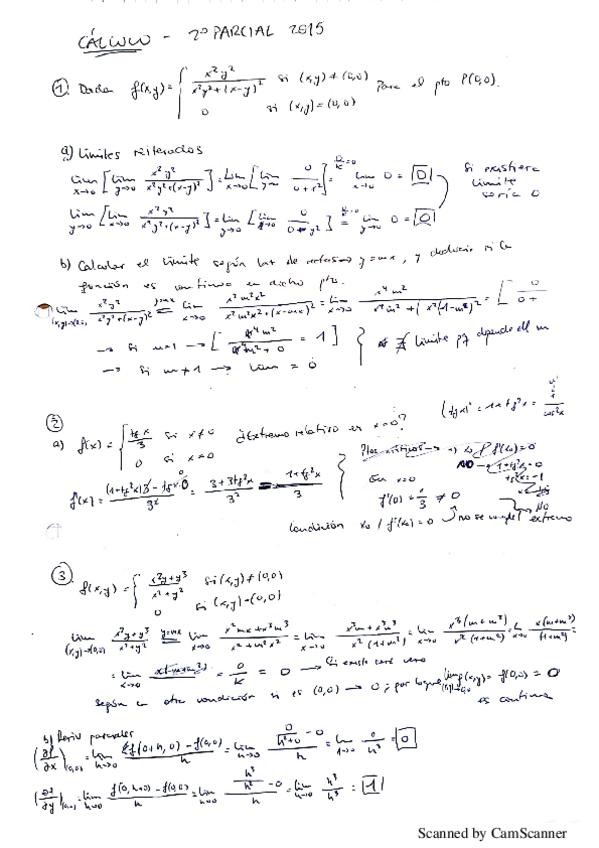 CÁLCULO - 2º PARCIAL 2015
① Dada f(x,y) = { x²y² / x²y²+(x-y)² si (x,y) ≠ (0,0) para el pto P(0,0).
0 si (x,y) = (0,0)
a) Límites reiterados
lim x→0 [lim y→0 x²y² / x²y²+(x-y)²] = lim x→0 [lim y→0 0 / 0+x²] = lim x→0 0 = 0
Si existiera límite sería 0
lim y→0 [lim x→0 x²y² / x²y²+(x-y)²] = lim y→0 [lim x→0 0 / 0+y²] = lim y→0 0 = 0
b) Calcular el límite según haz de rectas y=mx, y deducir si la
función es continua en dicho pto.
lim (x,y)→(0,0) x²y² / x²y²+(x-y)² y=mx = lim x→0 x²m²x² / x²m²x²+(x-mx)² = lim x→0 x⁴m² / x⁴m²+(x²(1-m)²) = [0 / 0+
→ Si m=1 → [x⁴m² / x⁴m²+0 = 1]
∄ límite pq depende del m
→ Si m≠1 → lim = 0
②
a) f(x) = { tg x / 3 si x≠0 ¿Extremo relativo en x=0? (tg x)' = 1+tg²x = 1 / cos²x
0 si x=0
f'(x) = (1+tg²x)3 - tg x·0 / 3² = 3+3tg²x / 3² = 1+tg²x / 3
Ptos críticos → f'(x₀)=0
NO → 1+tg²x=0
tg²x=-1
En x=0
f'(0) = 1/3 ≠ 0
Condición x₀ / f'(x₀) = 0 no se cumple
No extremo
③ f(x,y) = { x²y+y³ / x²+y² si (x,y)≠(0,0)
0 si (x,y)=(0,0)
lim (x,y)→(0,0) x²y+y³ / x²+y² y=mx = lim x→0 x²mx+x³m³ / x²+m²x² = lim x→0 x³m+x³m³ / x²(1+m²) = lim x→0 x³(m+m³) / x²(1+m²) = lim x→0 x(m+m³) / (1+m²) =
= lim x→0 x(m+m³) / = 0/K = 0 → Si existe será cero
Según la otra condición si es (0,0) → 0; por lo que lim f(x,y) = f(0,0) = 0
(x,y)→(0,0) es continua
b) Deriv parciales
(∂f/∂x)(0,0) = lim h→0 f(0+h,0) - f(0,0) / h = lim h→0 0/h²+0 - 0 / h = lim h→0 0/h³ = 0
(∂f/∂y)(0,0) = lim h→0 f(0,h+0) - f(0,0) / h = lim h→0 h³/h² - 0 / h = lim h→0 h³/h³ = 1
Scanned by CamScanner